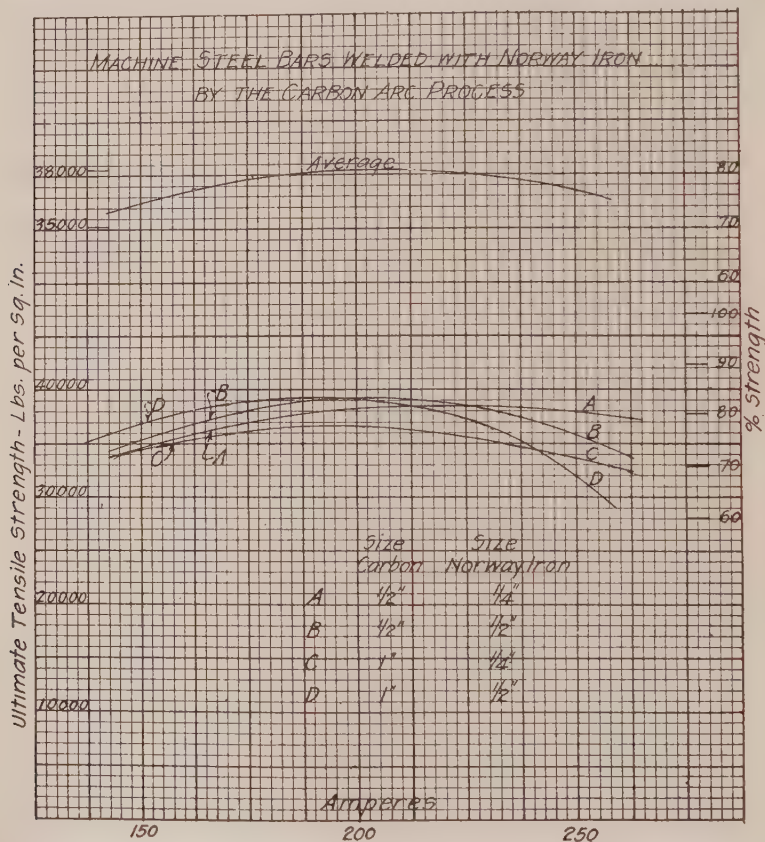 MACHINE STEEL BARS WELDED WITH NORWAY IRON
BY THE CARBON ARC PROCESS
Average
38000
35000
40000
30000
20000
10000
Ultimate Tensile Strength - Lbs. per Sq. in.
80
70
60
100
90
80
70
60
% Strength
D
B
C
A
A
B
C
D
Size Size
Carbon Norway Iron
A 1/2" 1/4"
B 1/2" 1/2"
C 1" 1/4"
D 1" 1/2"
Amperes
150 200 250